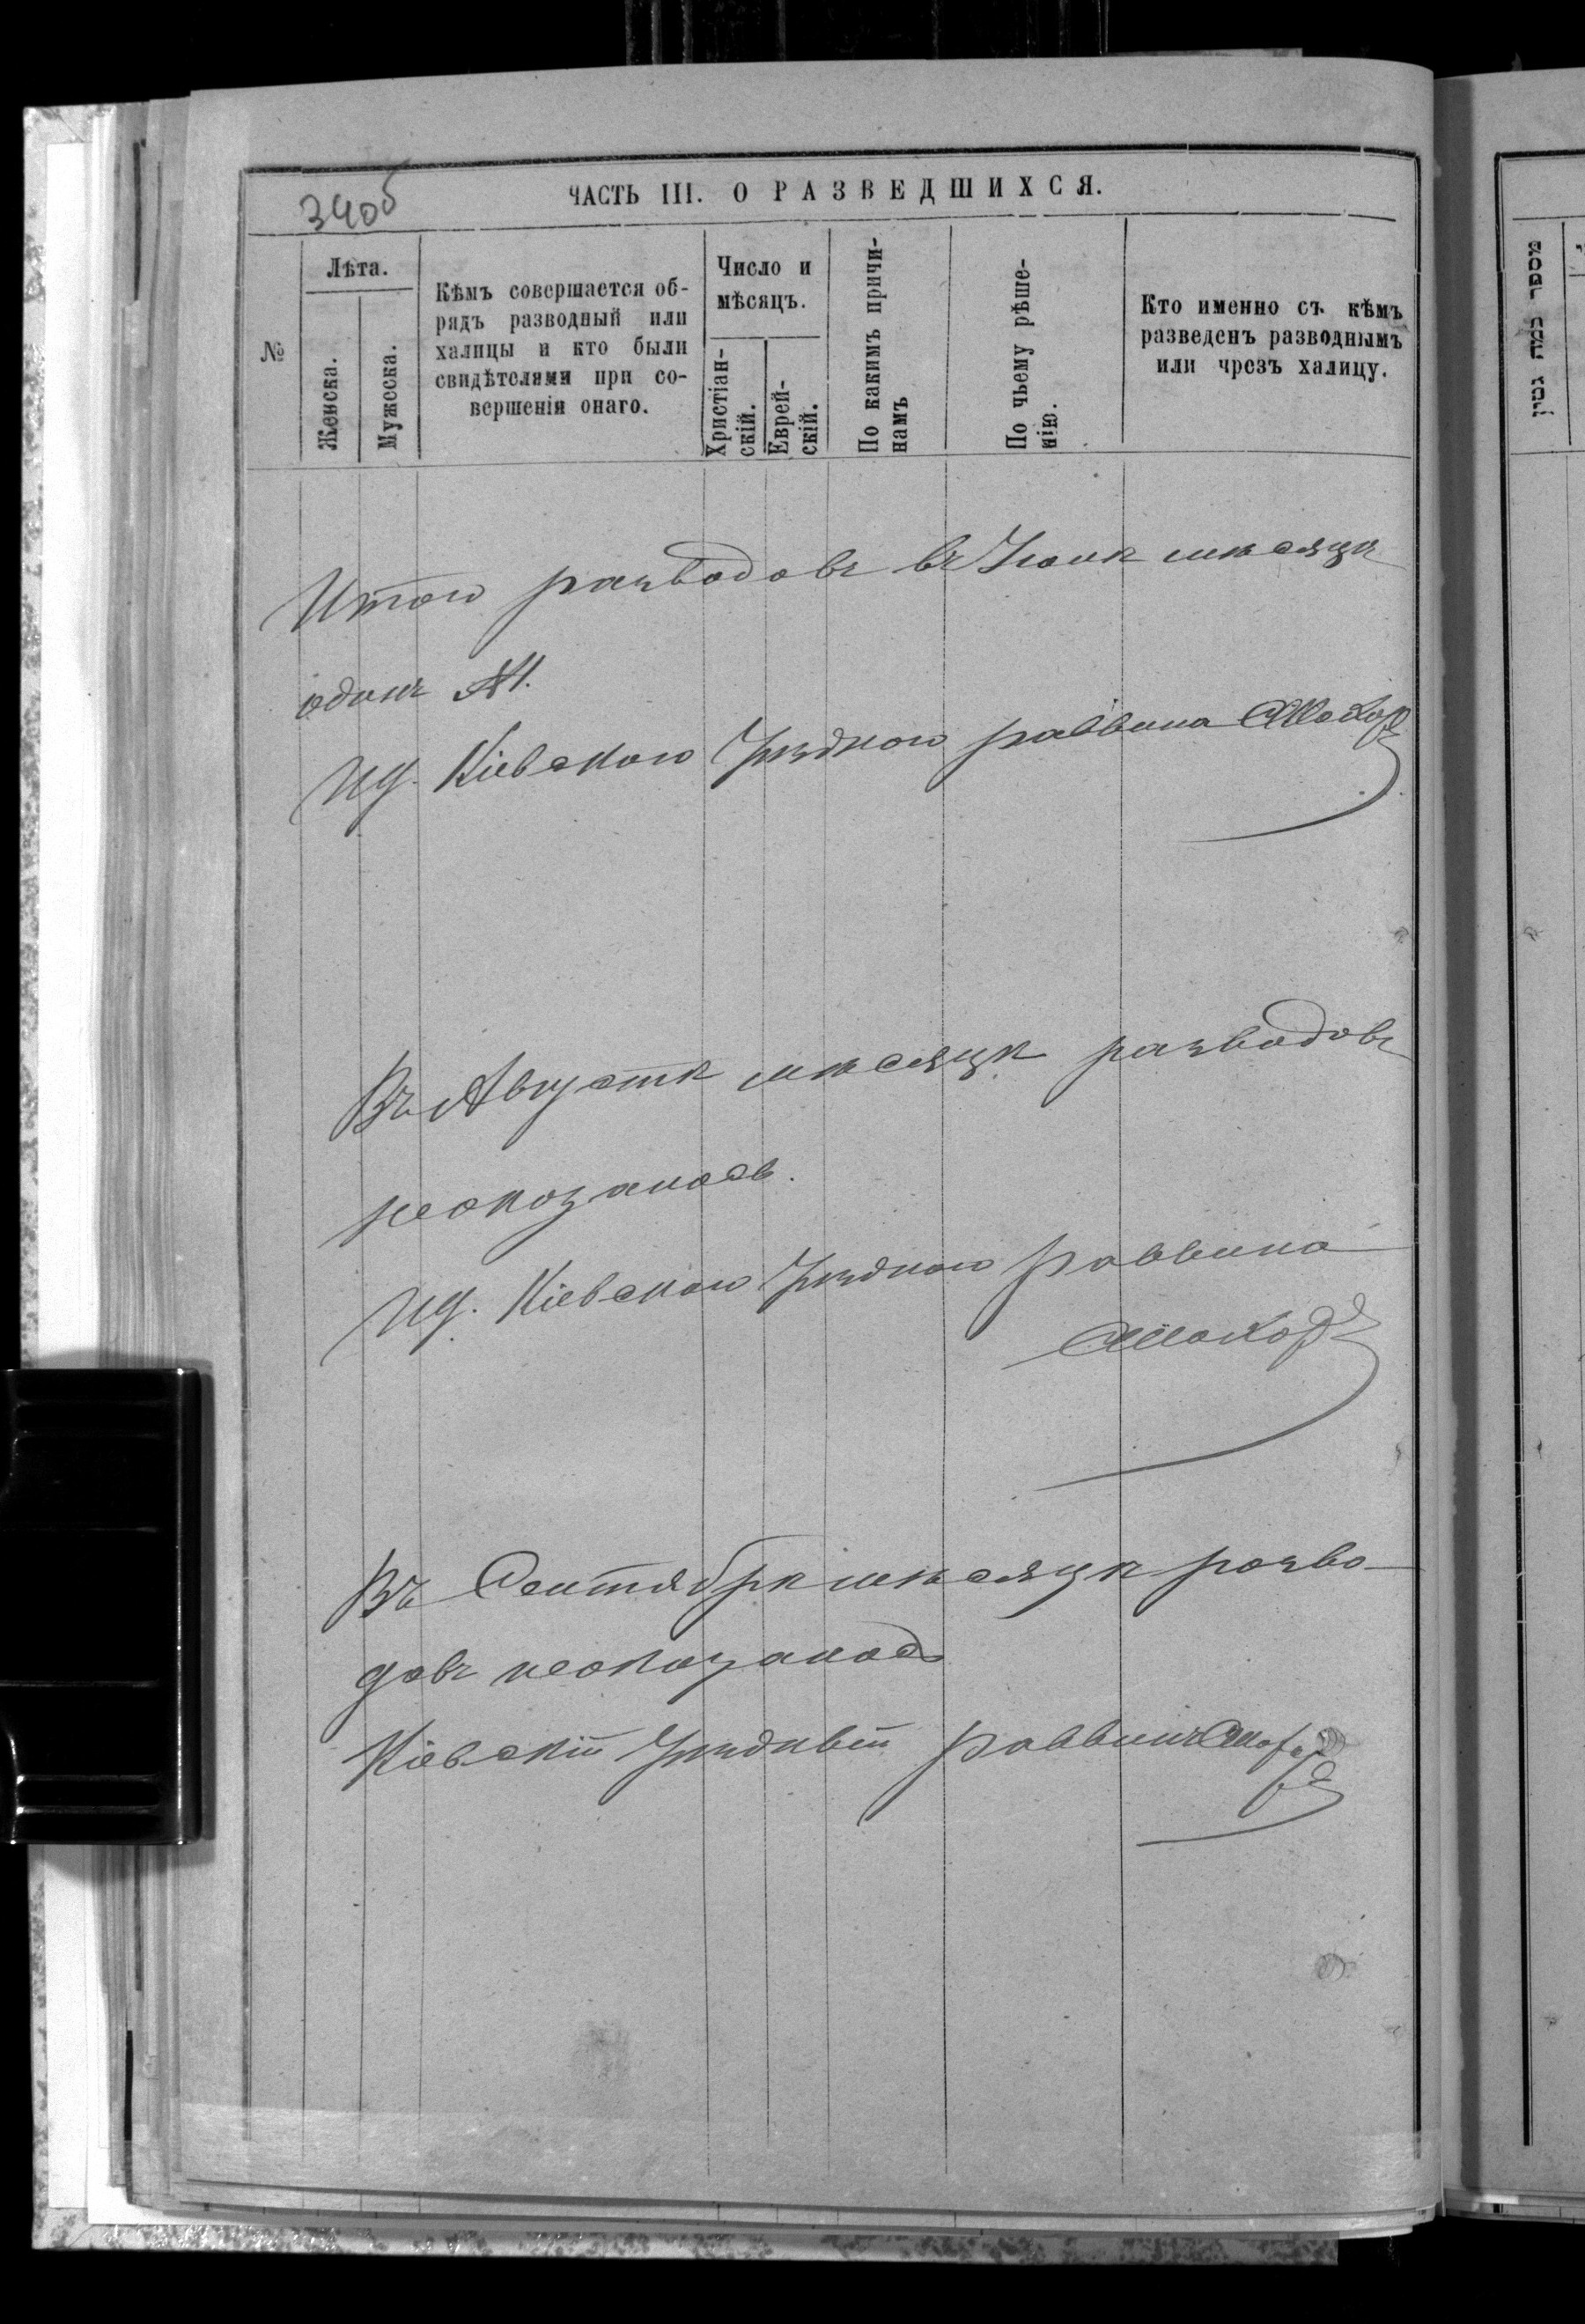 340об
ЧАСТЬ III. О РАЗВЕДШИХСЯ.
№
Лѣта.
Женска.
Мужеска.
Кѣмъ совершается об-
рядъ разводный или
халицы и кто были
свидѣтелями при со-
вершенія онаго.
Число и
мѣсяцъ.
Христіан-
скій.
Еврей-
скій.
По какимъ причи-
намъ
По чьему рѣше-
нію.
Кто именно съ кѣмъ
разведенъ разводнымъ
или чрезъ халицу.
Итого разводовъ въ мѣсяцѣ
одинъ №1.
Кіевскаго Уѣзднаго раввина
Въ Августѣ мѣсяцѣ разводовъ
неоказалось.
Кіевскаго Уѣзднаго раввина
Въ Сентябрѣ мѣсяцѣ разво-
довъ неоказалось
Кіевскій Уѣздный раввинъ
מספר כמה גטין